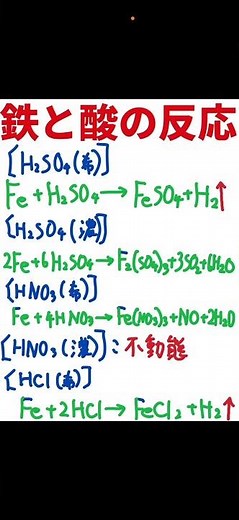 鉄と酸の反応
[H₂SO₄(希)]
Fe+H₂SO₄→FeSO₄+H₂↑
[H₂SO₄(濃)]
2Fe+6H₂SO₄→F₂(SO₄)₃+3SO₂+6H₂O
[HNO₃(希)]
Fe+4HNO₃→Fe(NO₃)₃+NO+2H₂O
[HNO₃(濃)]:不動態
[HCl(希)]
Fe+2HCl→FeCl₂+H₂↑